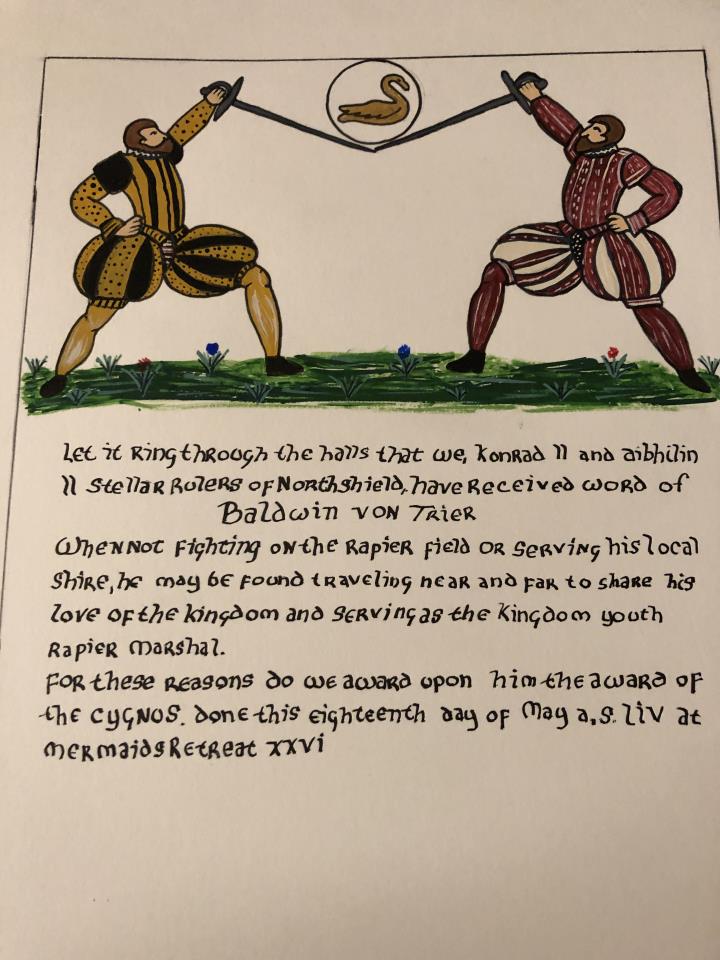 Let it Ring through the halls that we, Konrad II and aibhilin
II Stellar Rulers of Northshield, have Received word of
Baldwin von Trier
When Not Fighting on the Rapier Field or Serving his local
Shire, he may be found traveling near and far to share his
love of the kingdom and Serving as the Kingdom youth
Rapier Marshal.
For these Reasons do we award upon him the award of
the CYGNUS. Done this eighteenth day of May a.S. LIV at
Mermaids Retreat XXVI